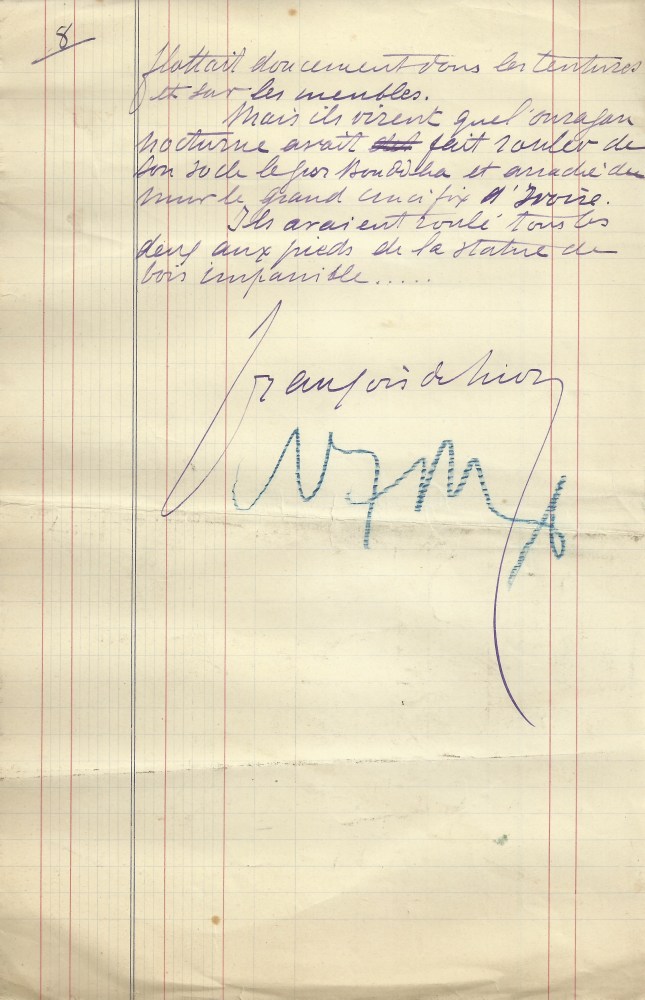 8
flottait doucement dans les tentures
et sur les meubles.
Mais ils virent que l'ouragan
nocturne avait fait rouler de
son socle le gros Bouddha et arraché du
mur le grand crucifix d'Ivoire.
Ils avaient roulé tous les
deux aux pieds de la statue de
bois impassible.....
François de Nion